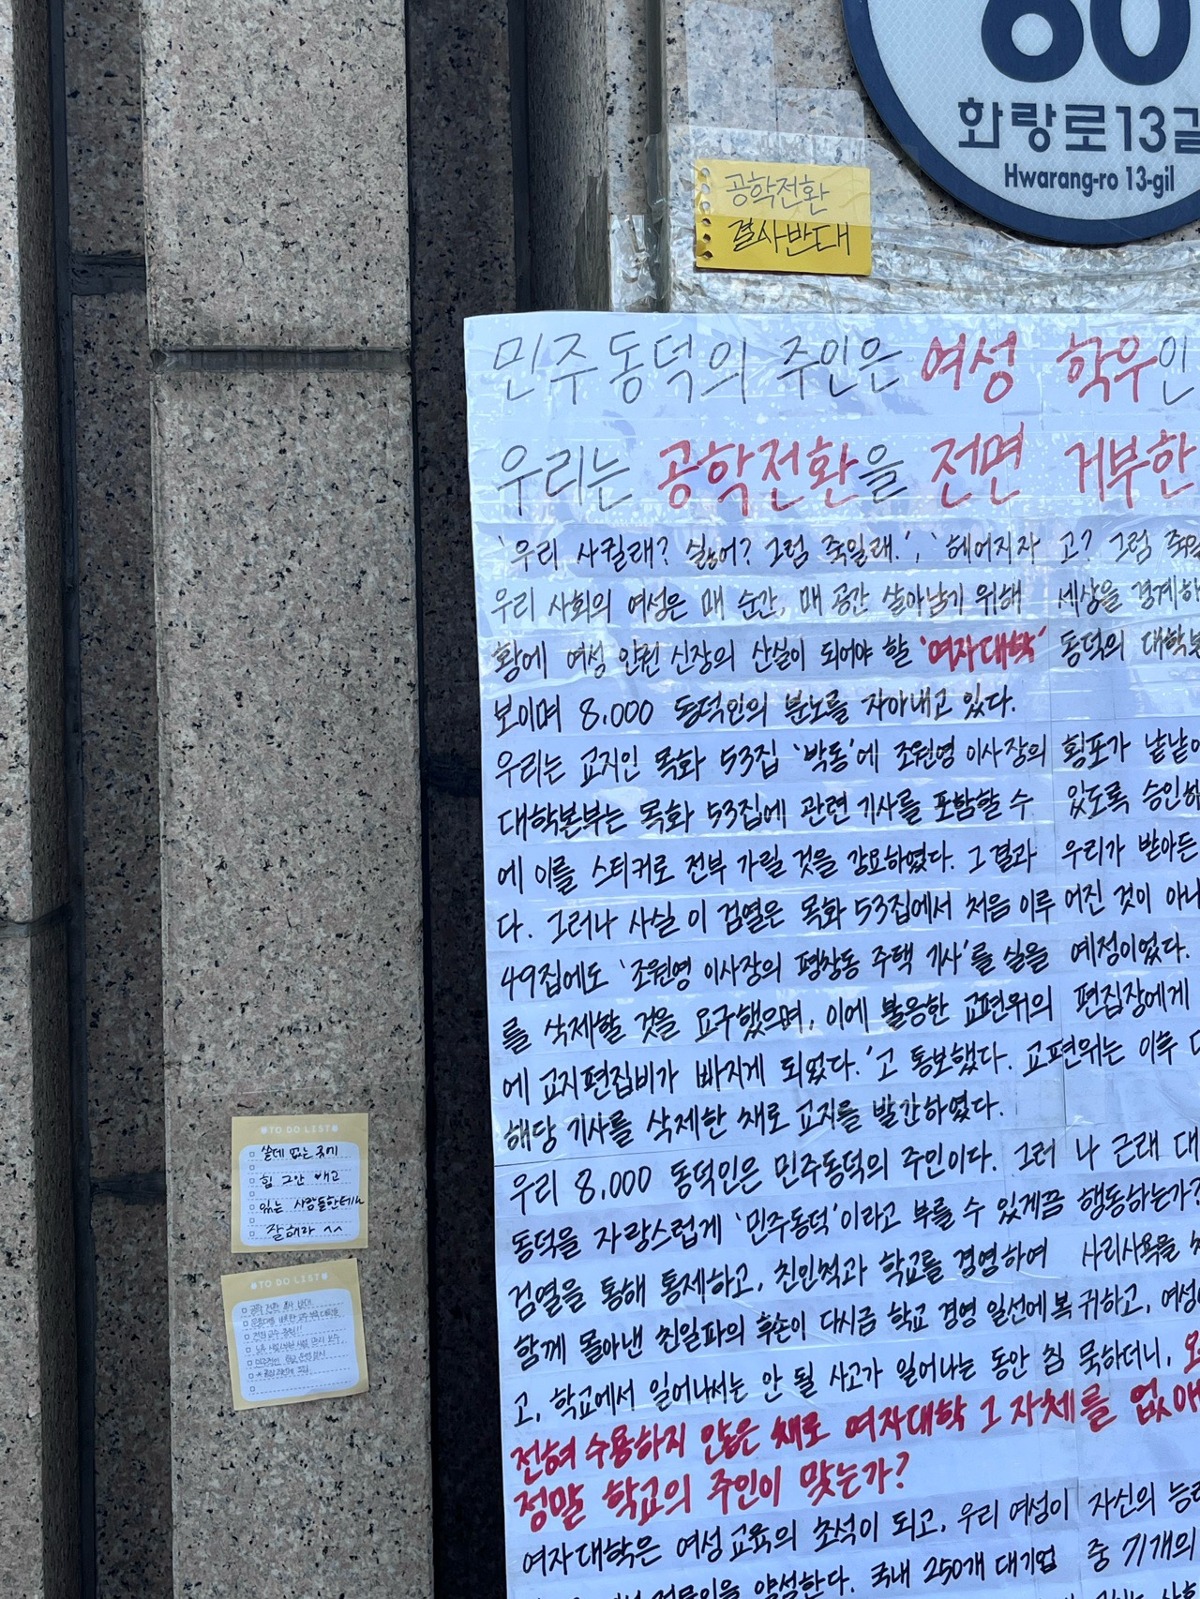 60
화랑로13길
Hwarang-ro 13-gil
공학전환
결사반대
민주동덕의 주인은 여성 학우인
우리는 공학전환을 전면 거부한
'우리 사킬래? 싫어? 그럼 죽일래.', '헤어지자 고? 그럼 죽일
우리 사회의 여성은 매 순간, 매 공간 살아남기 위해 세상을 경계하
황에 여성 인권 신장의 산실이 되어야 할 '여자대학' 동덕의 대학본
보이며 8,000 동덕인의 분노를 자아내고 있다.
우리는 교지인 목화 53집 '박동'에 조원영 이사장의 횡포가 낱낱이
대학본부는 목화 53집에 관련 기사를 포함할 수 있도록 승인하
에 이를 스티커로 전부 가릴 것을 강요하였다. 그 결과 우리가 받아든
다. 그러나 사실 이 검열은 목화 53집에서 처음 이루 어진 것이 아니
49집에도 '조원영 이사장의 평창동 주택 기사'를 실을 예정이었다.
를 삭제할 것을 요구했으며, 이에 불응한 교편위의 편집장에게
에 교지편집비가 빠지게 되었다.'고 통보했다. 교편위는 이후
해당 기사를 삭제한 채로 교지를 발간하였다.
우리 8,000 동덕인은 민주동덕의 주인이다. 그러 나 근래 대
동덕을 자랑스럽게 '민주동덕'이라고 부를 수 있게끔 행동하는가?
검열을 통해 통제하고, 친인척과 학교를 경영하여 사리사욕을
함께 몰아낸 친일파의 후손이 다시금 학교 경영 일선에 복귀하고, 여성
고, 학교에서 일어나서는 안 될 사고가 일어나는 동안 침 묵하더니,
전혀 수용하지 않은 채로 여자대학 그 자체를 없애
정말 학교의 주인이 맞는가?
여자대학은 여성 교육의 초석이 되고, 우리 여성이 자신의 능력
양성한다. 국내 250개 대기업 중 71개의
TO DO LIST
쓸데 없는 곳에
힘 그만 빼고
있는 사람들한테나
잘해라 ^^
TO DO LIST